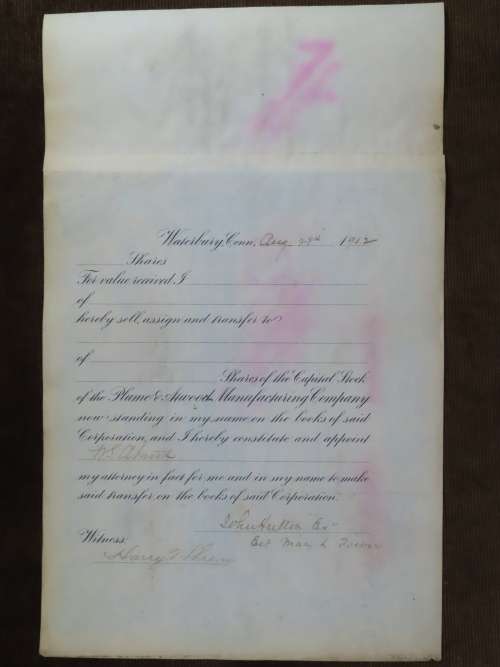 Waterbury, Conn., Aug. 29th 1912
Shares
For value received, I
of
hereby sell, assign and transfer to
of
Shares of the Capital Stock
of the Plume & Atwood Manufacturing Company
now standing in my name on the books of said
Corporation, and I hereby constitute and appoint
my attorney in fact for me and in my name to make
said transfer on the books of said Corporation.
John Hutton Ex
Est
Witness:
Harry